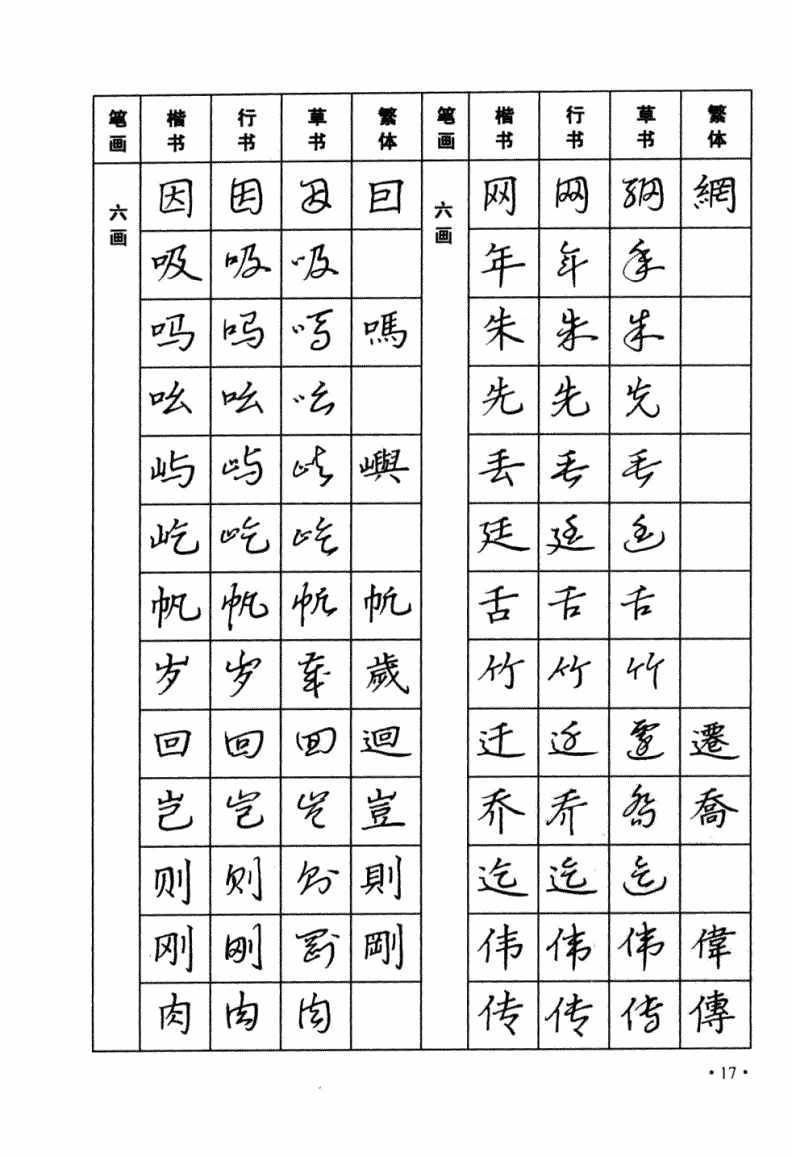 笔画 楷书 行书 草书 繁体 笔画 楷书 行书 草书 繁体
六画 因 因 因 囙 六画 网 网 網 網
吸 吸 吸 年 年 年
吗 吗 嗎 嗎 朱 朱 朱
吆 吆 吆 先 先 先
屿 屿 屿 嶼 丢 丢 丢
屹 屹 屹 廷 廷 廷
帆 帆 帆 帆 舌 舌 舌
岁 岁 歲 歲 竹 竹 竹
回 回 回 迴 迁 迁 遷 遷
岂 岂 岂 豈 乔 乔 喬 喬
则 则 則 則 迄 迄 迄
刚 刚 剛 剛 伟 伟 伟 偉
肉 肉 肉 传 传 傳 傳
·17·